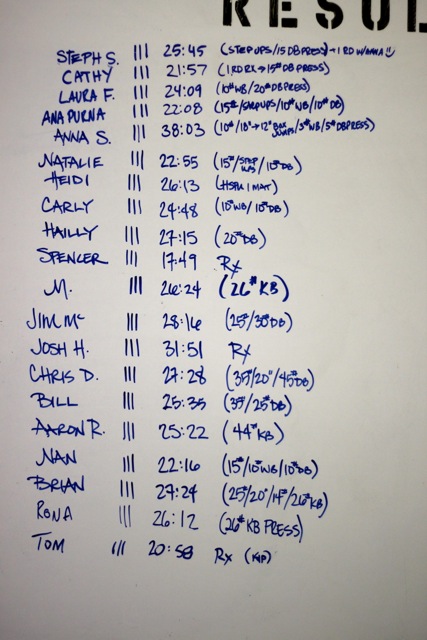 RESUL
STEPH S. III 25:45 (STEP UPS/15 DB PRESS) → 1 RD W/ANNA
CATHY III 21:57 (1 RD RX → 15# DB PRESS)
LAURA F. III 24:09 (10# WB/20# DB PRESS)
ANA PURNA III 22:08 (15#/STEPUPS/10# WB/10# DB)
ANNA S. III 38:03 (10#/18"→12" BOX JUMPS/3# WB/5# DB PRESS)
NATALIE III 22:55 (15#/STEP UPS/10# DB)
HEIDI III 26:13 (HSPU 1 MAT)
CARLY III 24:48 (10# WB/10# DB)
HAILLY III 27:15 (20# DB)
SPENCER III 17:49 Rx
M. III 26:24 (26# KB)
JIM Mc III 28:16 (25#/30# DB)
JOSH H. III 31:51 Rx
CHRIS D. III 27:28 (35#/20"/45# DB)
BILL III 25:35 (35#/25# DB)
AARON R. III 25:22 (44# KB)
NAN III 22:16 (15#/10# WB/10# DB)
BRIAN III 27:24 (25#/20"/14#/26# KB)
RONA III 26:12 (26# KB PRESS)
TOM III 20:58 Rx (KIP)